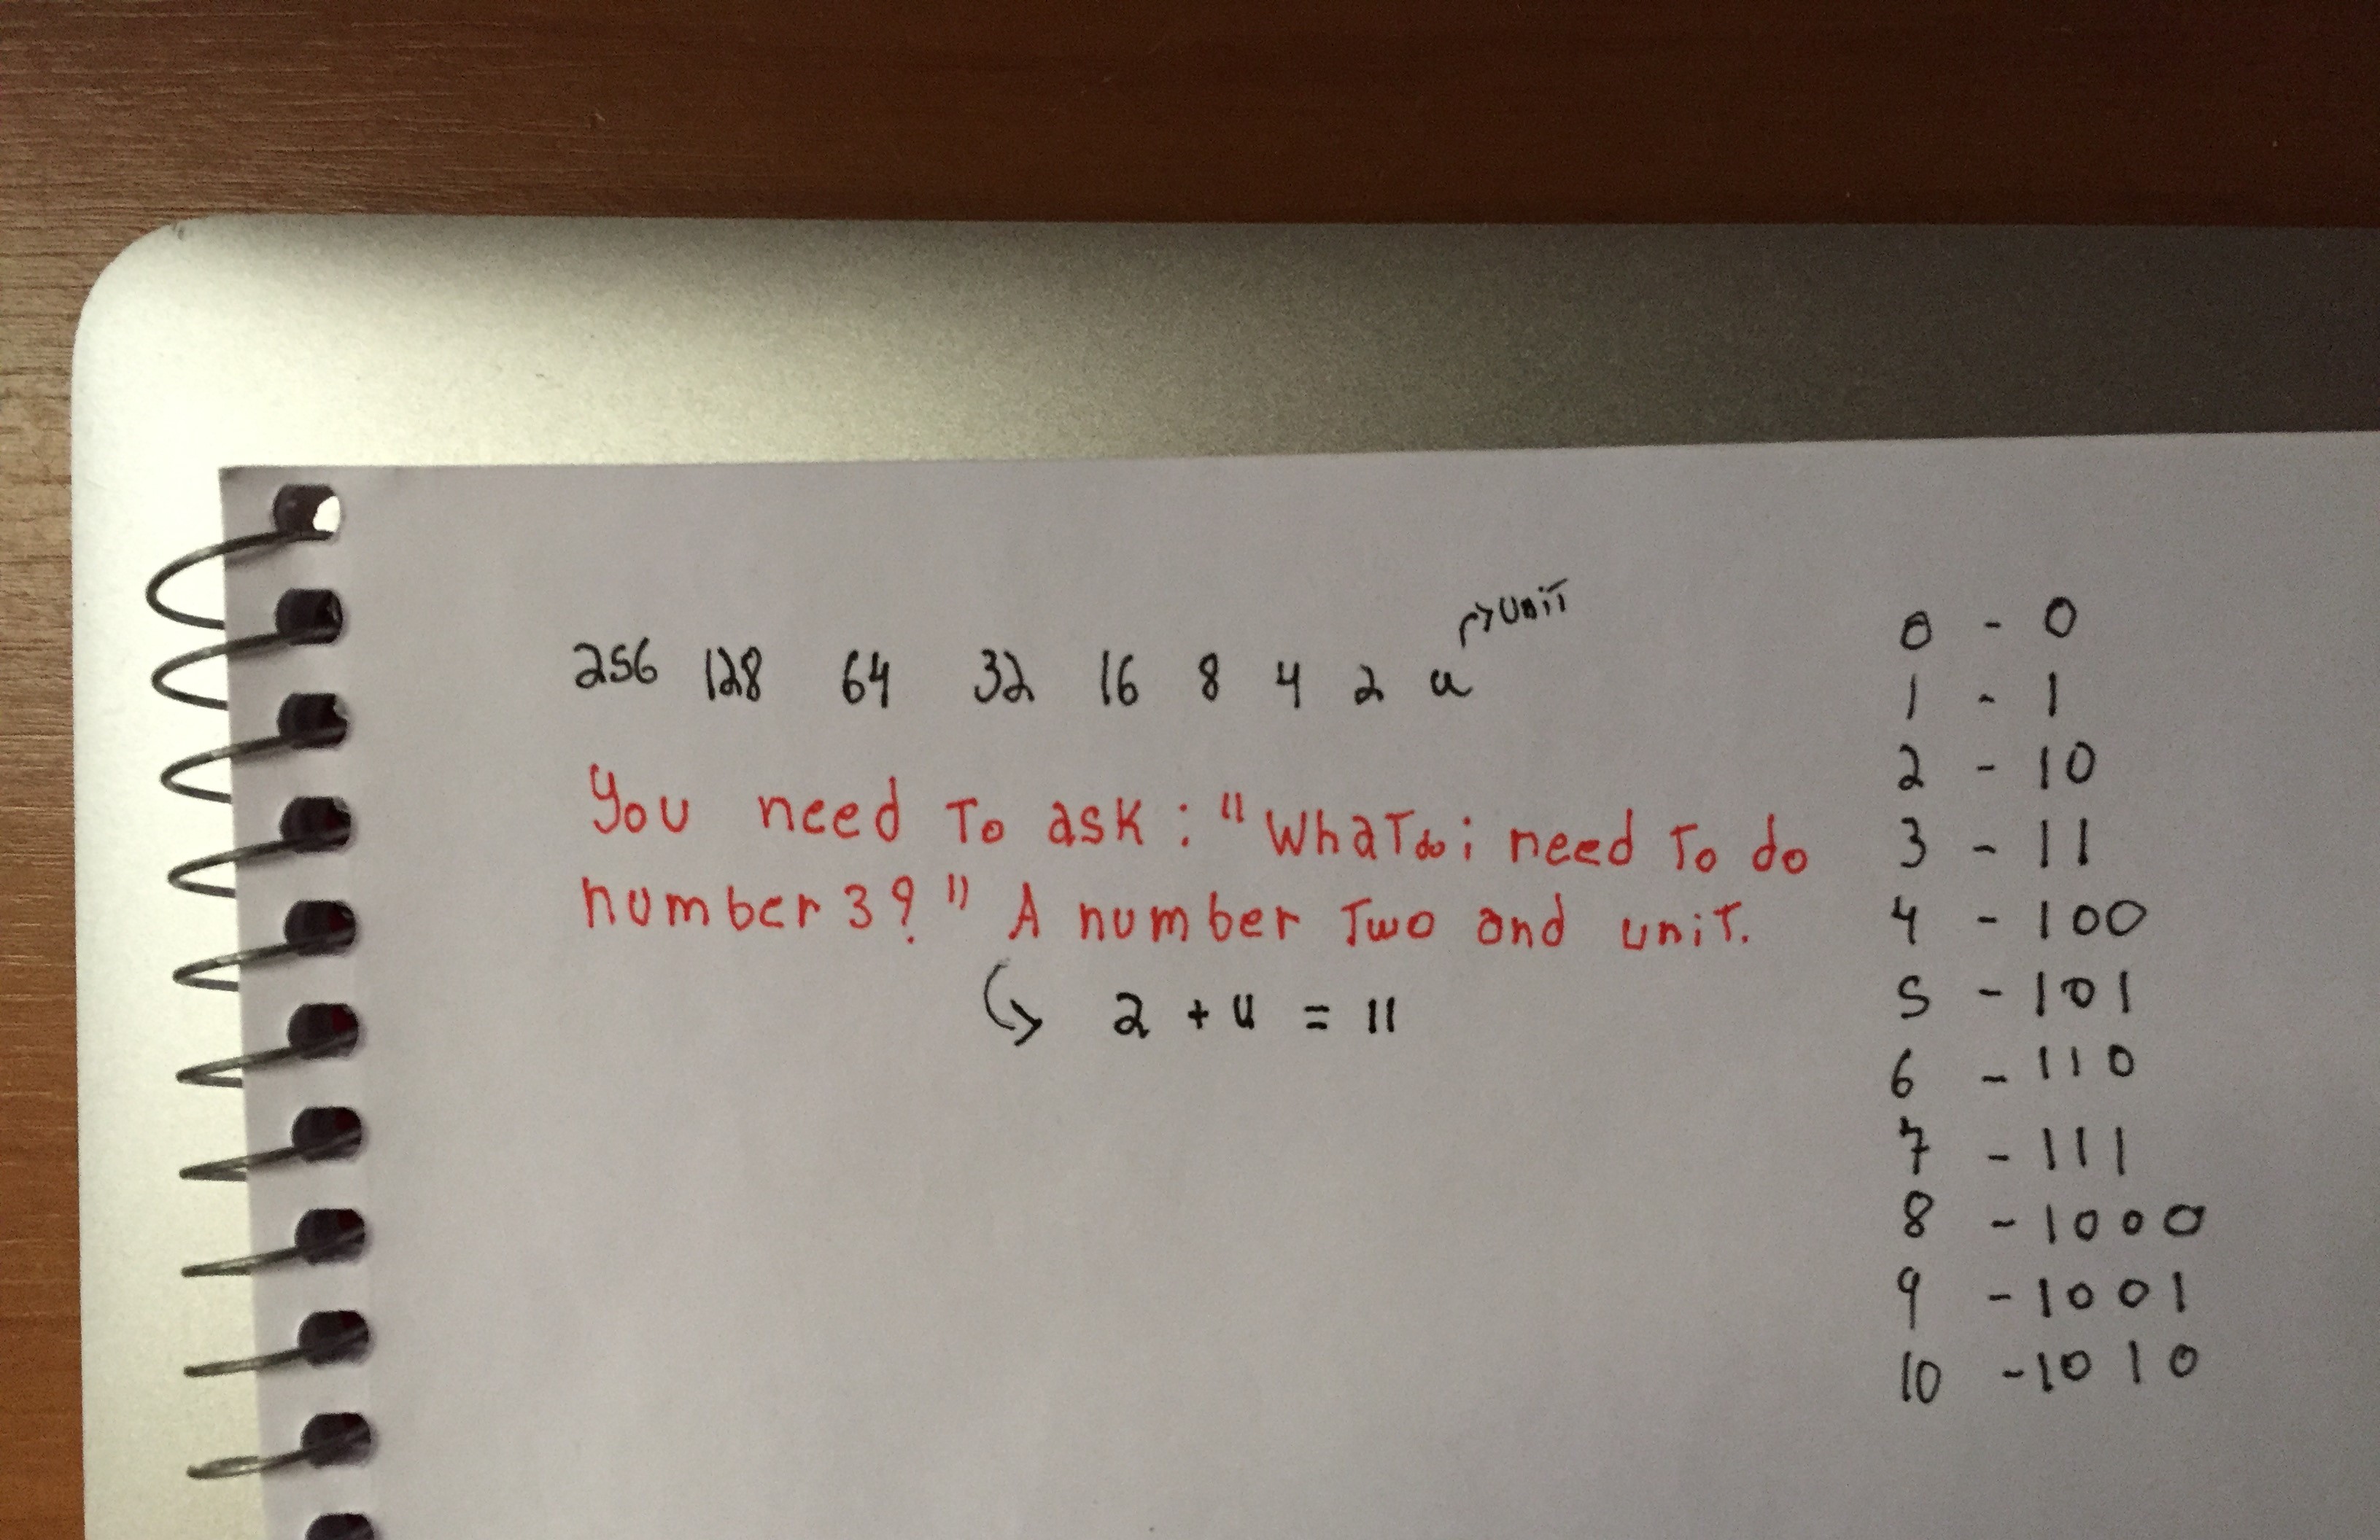 → unit
256 128 64 32 16 8 4 2 u
You need To ask: "What do i need To do
number 3?" A number Two and unit.
↳ 2 + u = 11
0 - 0
1 - 1
2 - 10
3 - 11
4 - 100
5 - 101
6 - 110
7 - 111
8 - 1000
9 - 1001
10 - 1010